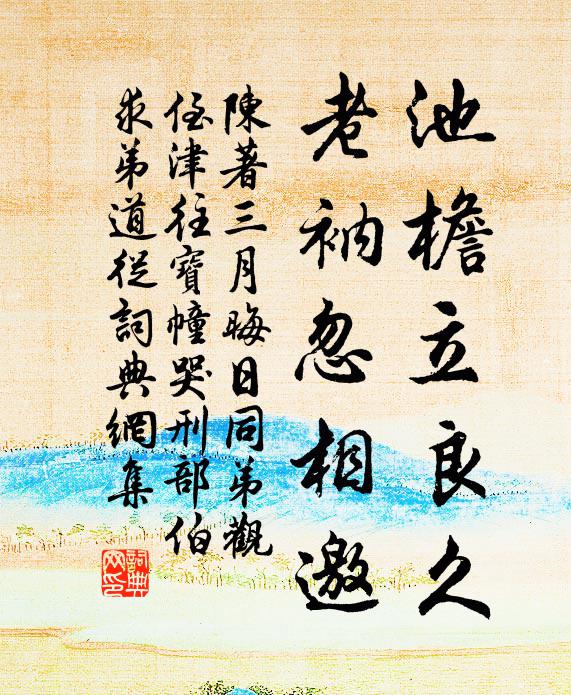 池檐立良久
老衲忽相邀
陳著三月晦日同弟觀
侄津往寶幢哭刑部伯
求弟道從詞典網集
詞典網印